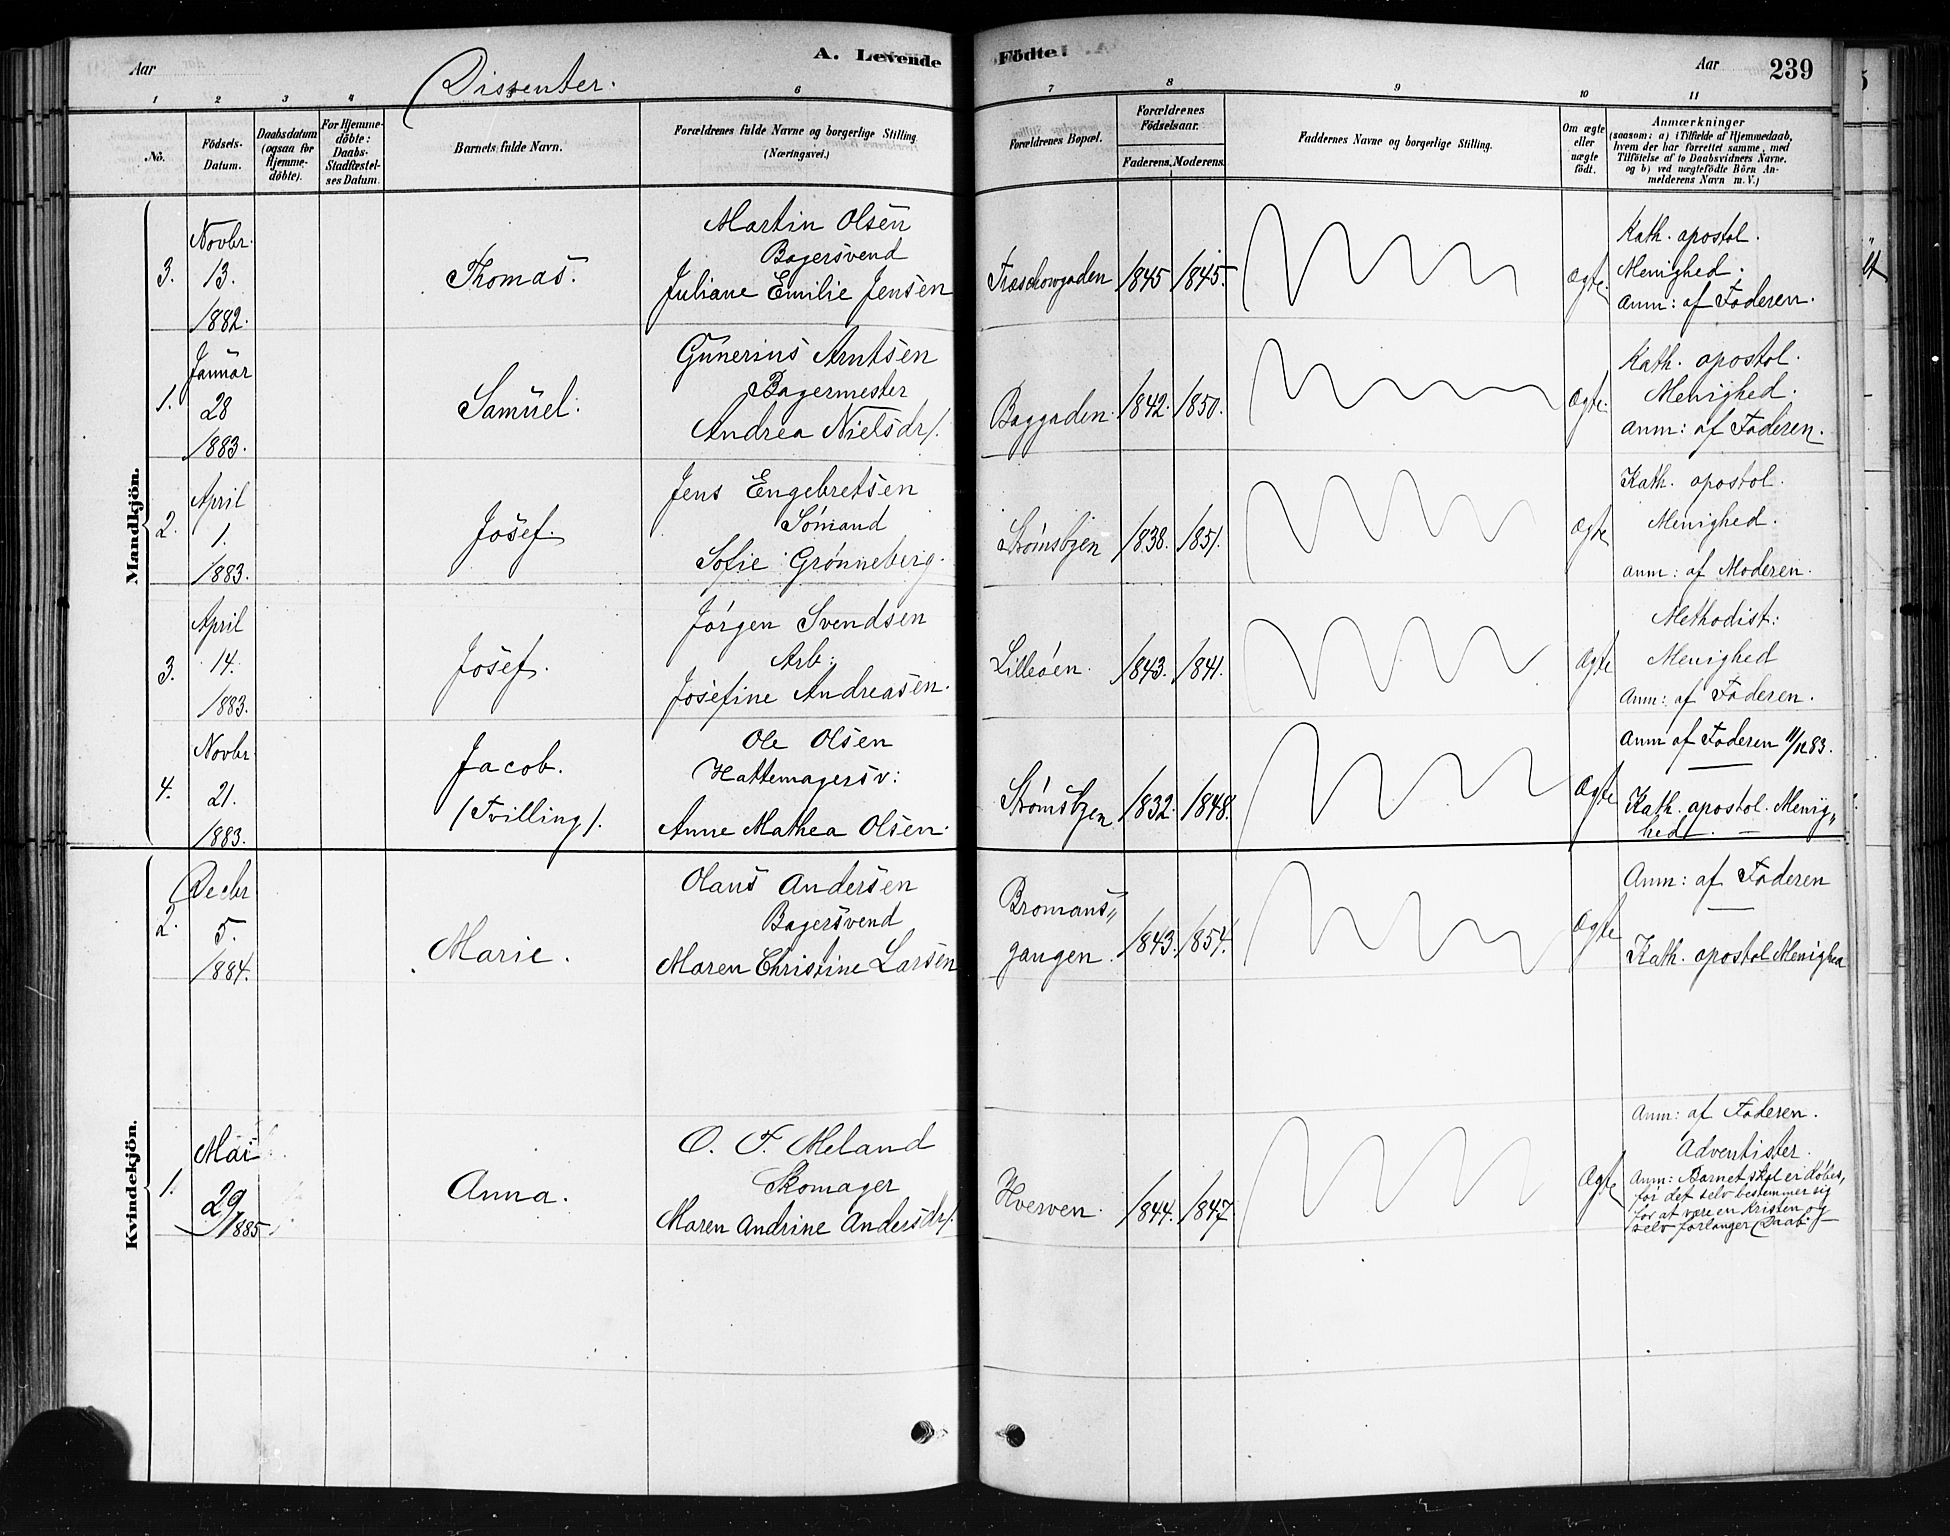 Aar
Dissenter.
A. Levende
Födte.
Aar
239
1
2
3
4
6
7
8
9
10
11
No.
Födsels-
Datum.
Daabsdatum
(ogsaa for
Hjemme-
döbte).
For Hjemme-
döbte:
Daabs-
Stadfæstel-
ses Datum.
Barnets fulde Navn.
Forældrenes fulde Navne og borgerlige Stilling.
(Næringsvei.)
Forældrenes Bopæl.
Forældrenes
Födselsaar.
Faderens.
Moderens.
Faddernes Navne og borgerlige Stilling.
Om ægte
eller
uægte
födt.
Anmærkninger
(saasom: a) i Tilfælde af Hjemmedaab,
hvem der har forrettet samme, med
Tilföielse af to Daabsvidners Navne.
og b) ved uægtefödte Börn An-
melderens Navn m. V.)
Mandkjön.
3.
Novbr.
13.
1882.
Thomas.
Martin Olsen
Bagersvend
Juliane Emilie Jensen
Træschowgaden
1845
1845.
Ægte.
Kath. apostol.
Menighed.
Anm: af Faderen.
1.
Januar
28
1883.
Samuel.
Gunerius Arntsen
Bagermester
Andrea Nielsdr/.
Baggaden.
1842.
1850.
Ægte.
Kath. apostol.
Menighed.
Anm: af Faderen.
2.
April
1.
1883.
Josef.
Jens Engebretsen
Sømand
Sofie Grønneberg.
Strømsbyen
1838.
1851.
Ægte
Kath. apostol.
Menighed.
Anm: af Moderen.
3.
April
14.
1883.
Josef.
Jørgen Svendsen
Arb:
Josefine Andreasen.
Lilleøen.
1843.
1841.
Ægte
Methodist:
Menighed
Anm: af Faderen.
4.
Novbr.
21.
1883.
Jacob.
(Tvilling).
Ole Olsen
Hattemagersv:
Anne Mathea Olsen.
Strømsbyen
1832.
1848.
Ægte
Anm af Faderen 11/12 83.
Kath. apostol. Menig„
hed.
Kvindekjön.
2.
Decbr
5.
1884.
Marie.
Olaus Andersen
Bagersvend
Maren Christine Larsen
Bromans„
gangen.
1843.
1854.
Ægte
Anm: af Faderen
Kath. apostol Menighed
1.
Mai
29/1885
Anna.
O. T. Meland
Skomager
Maren Andrine Andersdr/.
Hverven.
1844.
1847
Ægte
Anm: af Faderen.
Adventister.
Anm: Barnet skal ei døbes,
før det selv bestemmer sig
for at være en Kristen og
selv forlanger Daab.